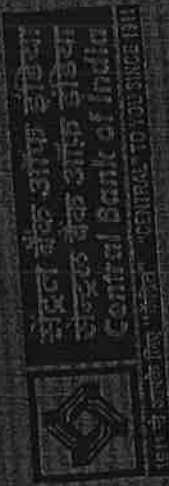 सेंट्रल बैंक ऑफ इंडिया
सेन्ट्रल बैंक ऑफ़ इंडिया
Central Bank of India
1911 से आपके लिए "केंद्रित" "CENTRAL" TO YOU SINCE 1911